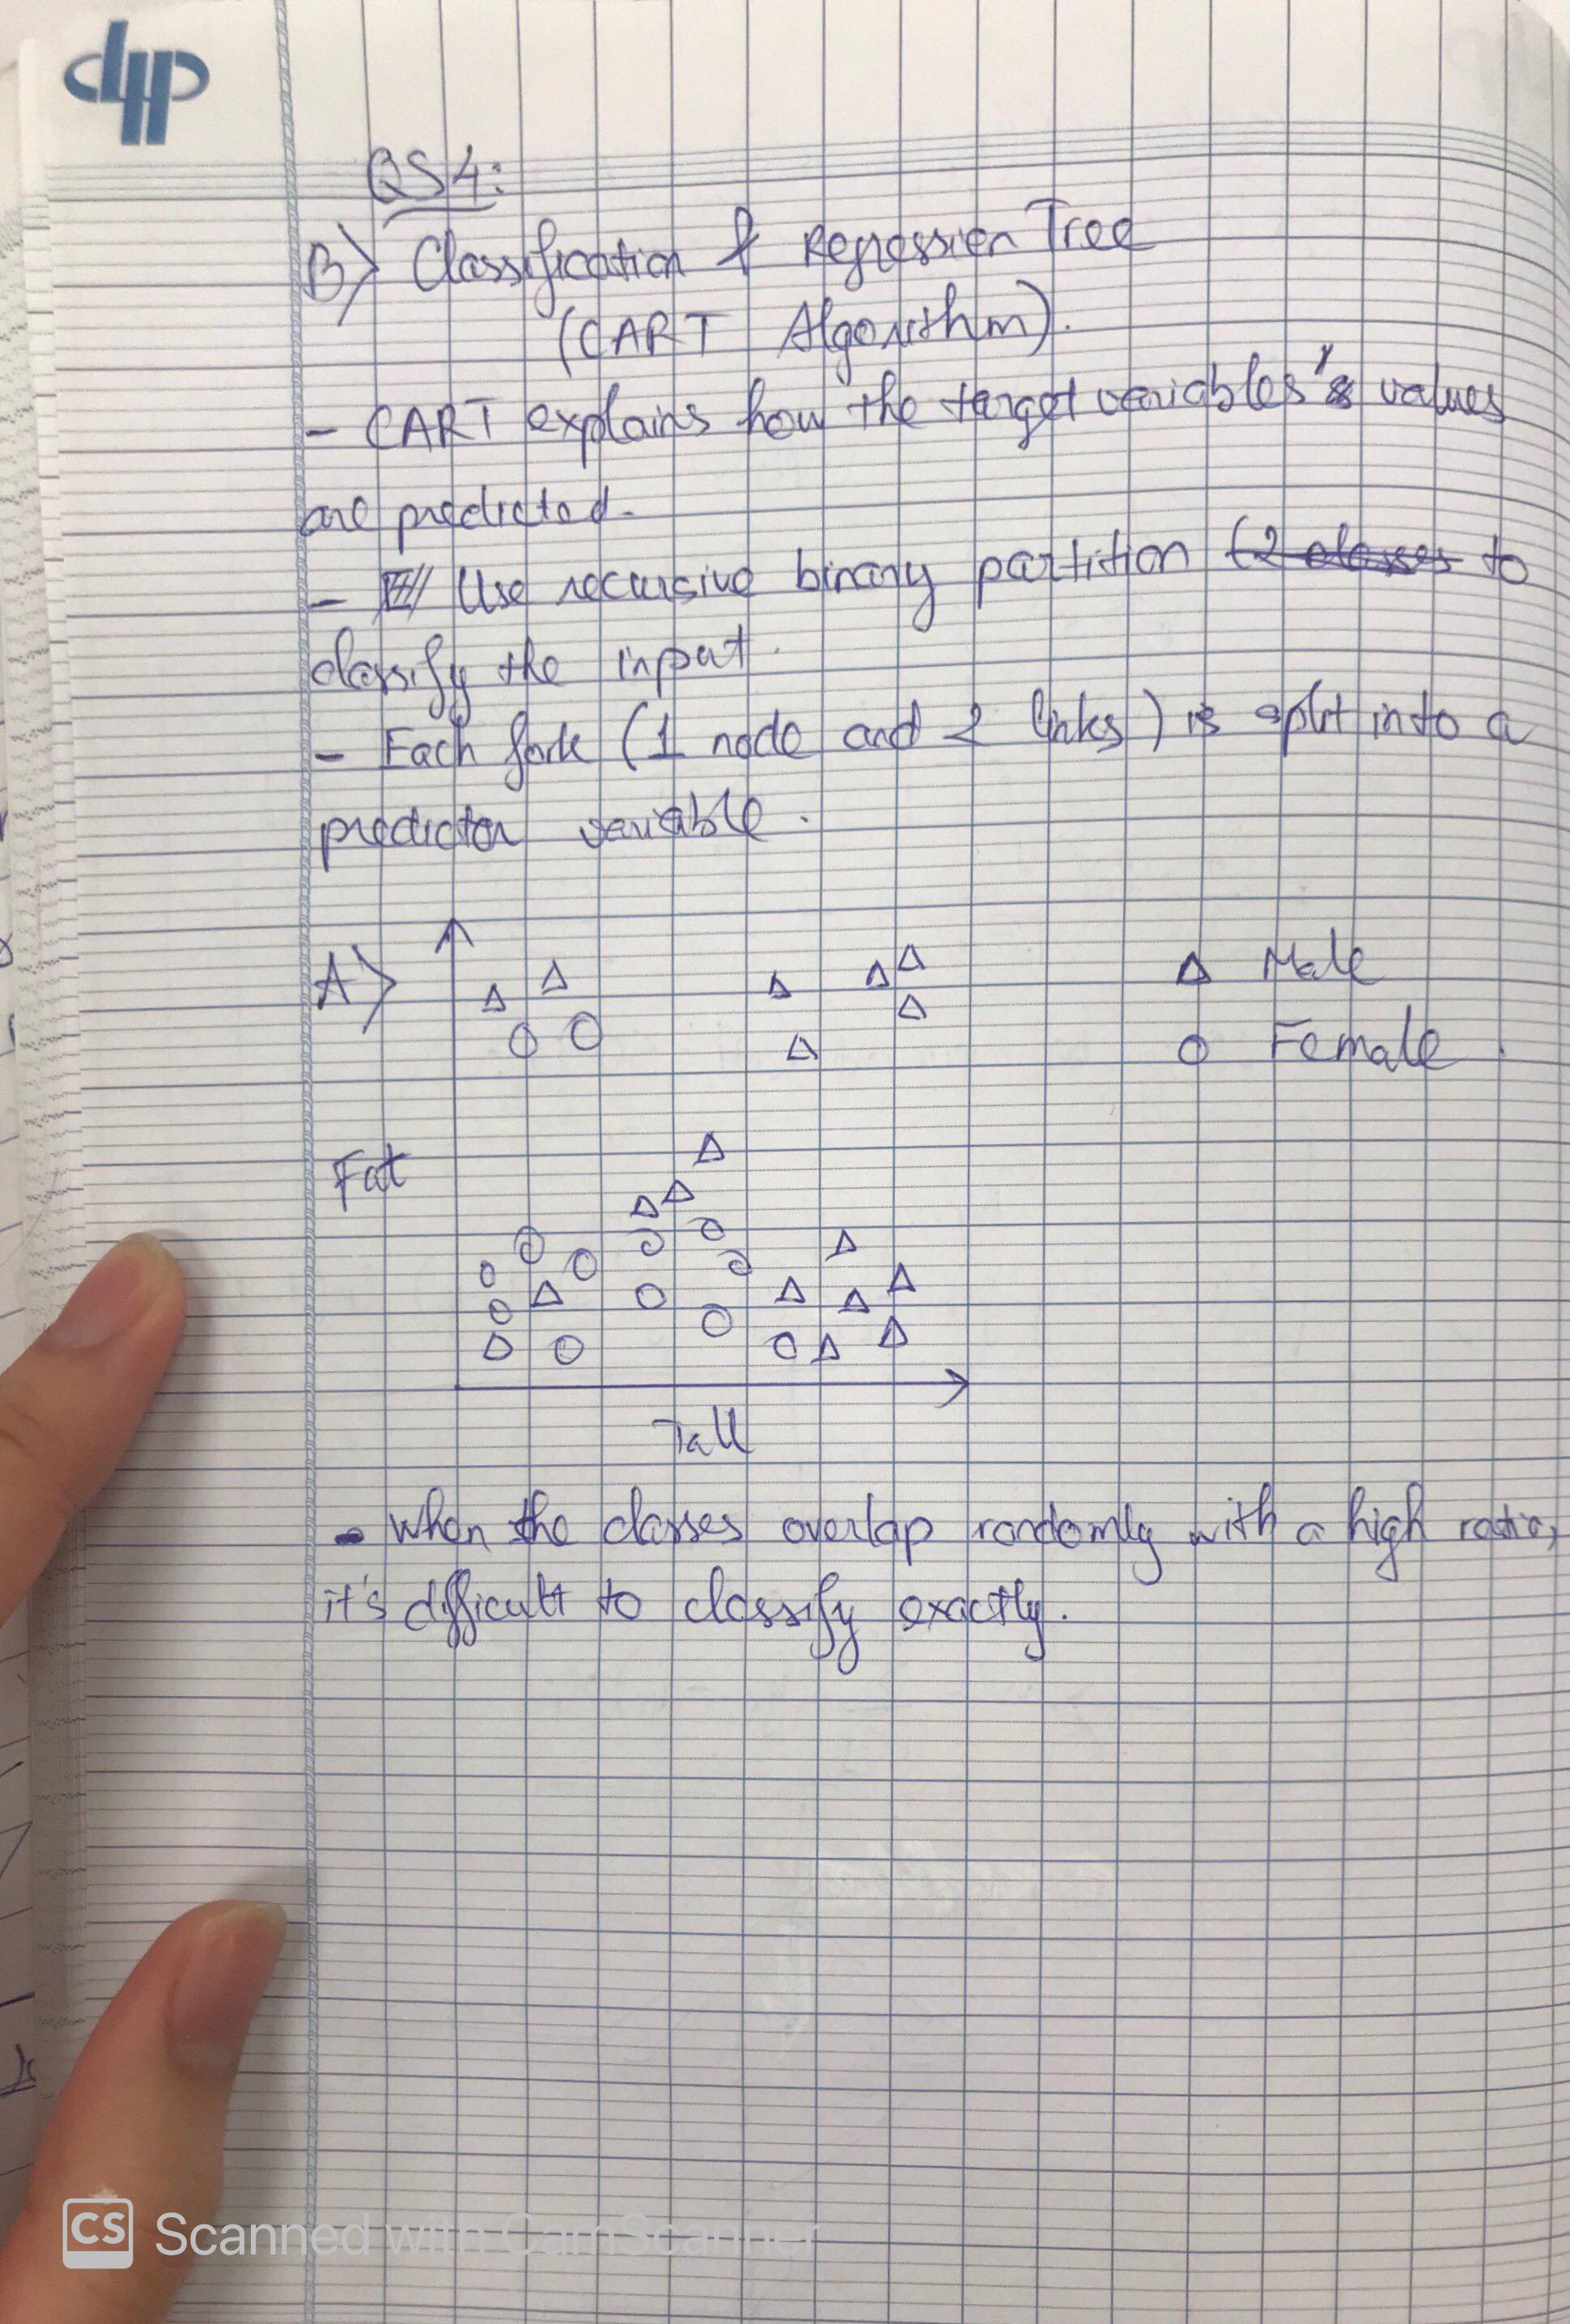 QS4:
B> Classification & Regression Tree
(CART Algorithm).
- CART explains how the target variables's values
are predicted.
- Use recursive binary partition (2 classes to
classify the input.
- Each fork (1 node and 2 links) is split into a
predictor variable.
A>
Male
Female.
Fat
Tall
- When the classes overlap randomly with a high ratio,
it's difficult to classify exactly.
CS Scanned with CamScanner